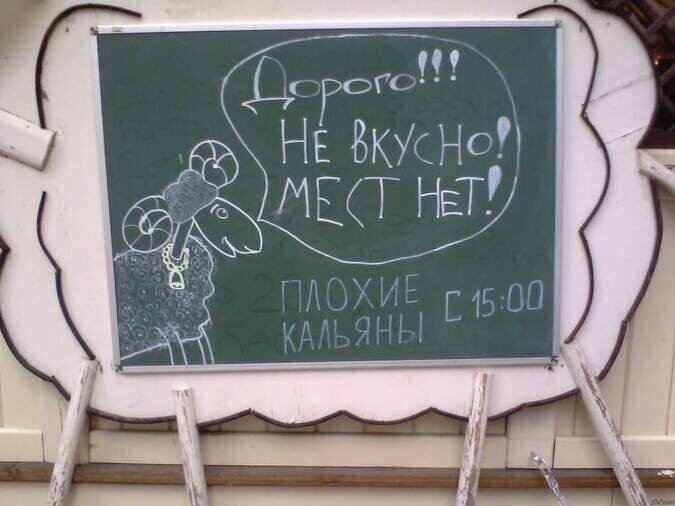 Дорого!!!
НЕ ВКУСНО!
МЕСТ НЕТ!
ПЛОХИЕ
КАЛЬЯНЫ
С 15:00